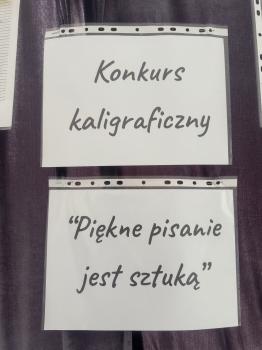 Konkurs
kaligraficzny
“Piękne pisanie
jest sztuką”